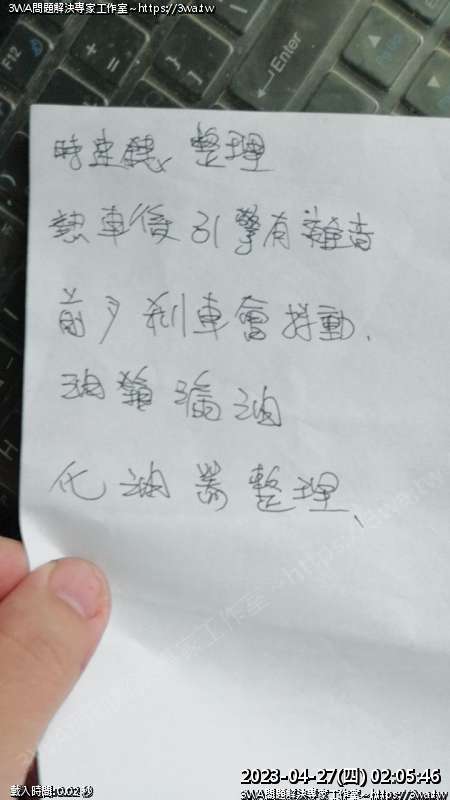 3WA問題解決專家工作室~https://3wa.tw
F12
Enter
時速錶 整理
熱車後引擎有雜音
前夕剎車會抖動.
油箱漏油
化油器整理、
載入時間:0.02 秒
2023-04-27(四) 02:05:46
3WA問題解決專家工作室~https://3wa.tw